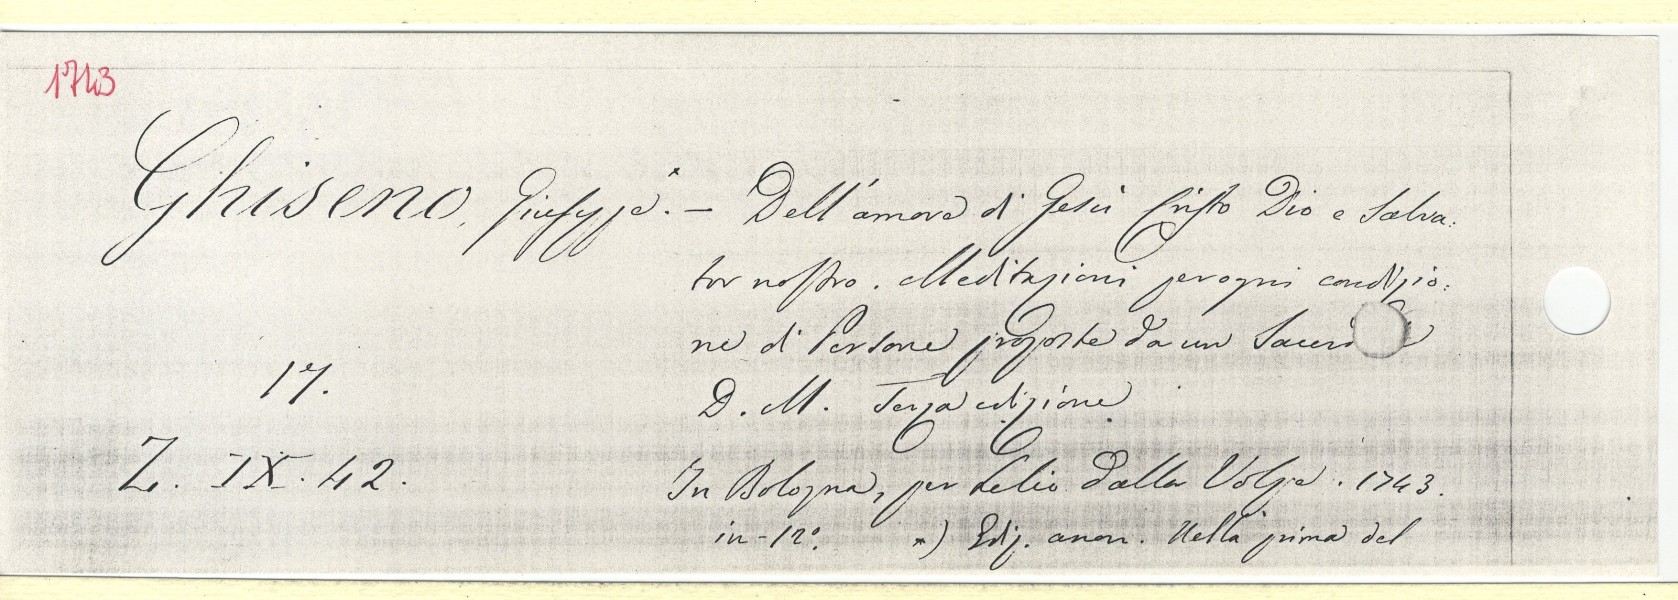 1743
Ghiseno, Giuseppe. — Dell'amore di Gesù Cristo Dio e Salva:
tor nostro. Meditazioni per ogni condizio:
ne di Persone proposte da un
D. M. Terza edizione
17.
Z. IX. 42.
In Bologna, per Lelio dalla Volpe. 1743.
in-12º. *) Ediz. anon. Nella prima del